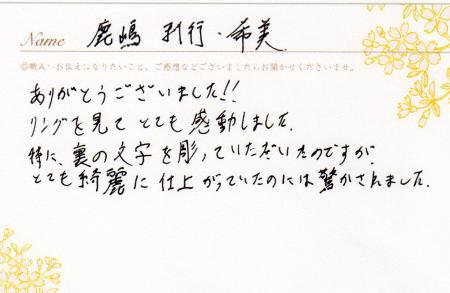 Name 鹿嶋 利行・希美
◎職人へお伝えになりたいこと、ご感想などございましたらお聞かせくださいませ。
ありがとうございました!!
リングを見て とても 感動しました。
特に、裏の文字を彫っていただいたのですが、
とても綺麗に仕上がっていたのには驚かされました。